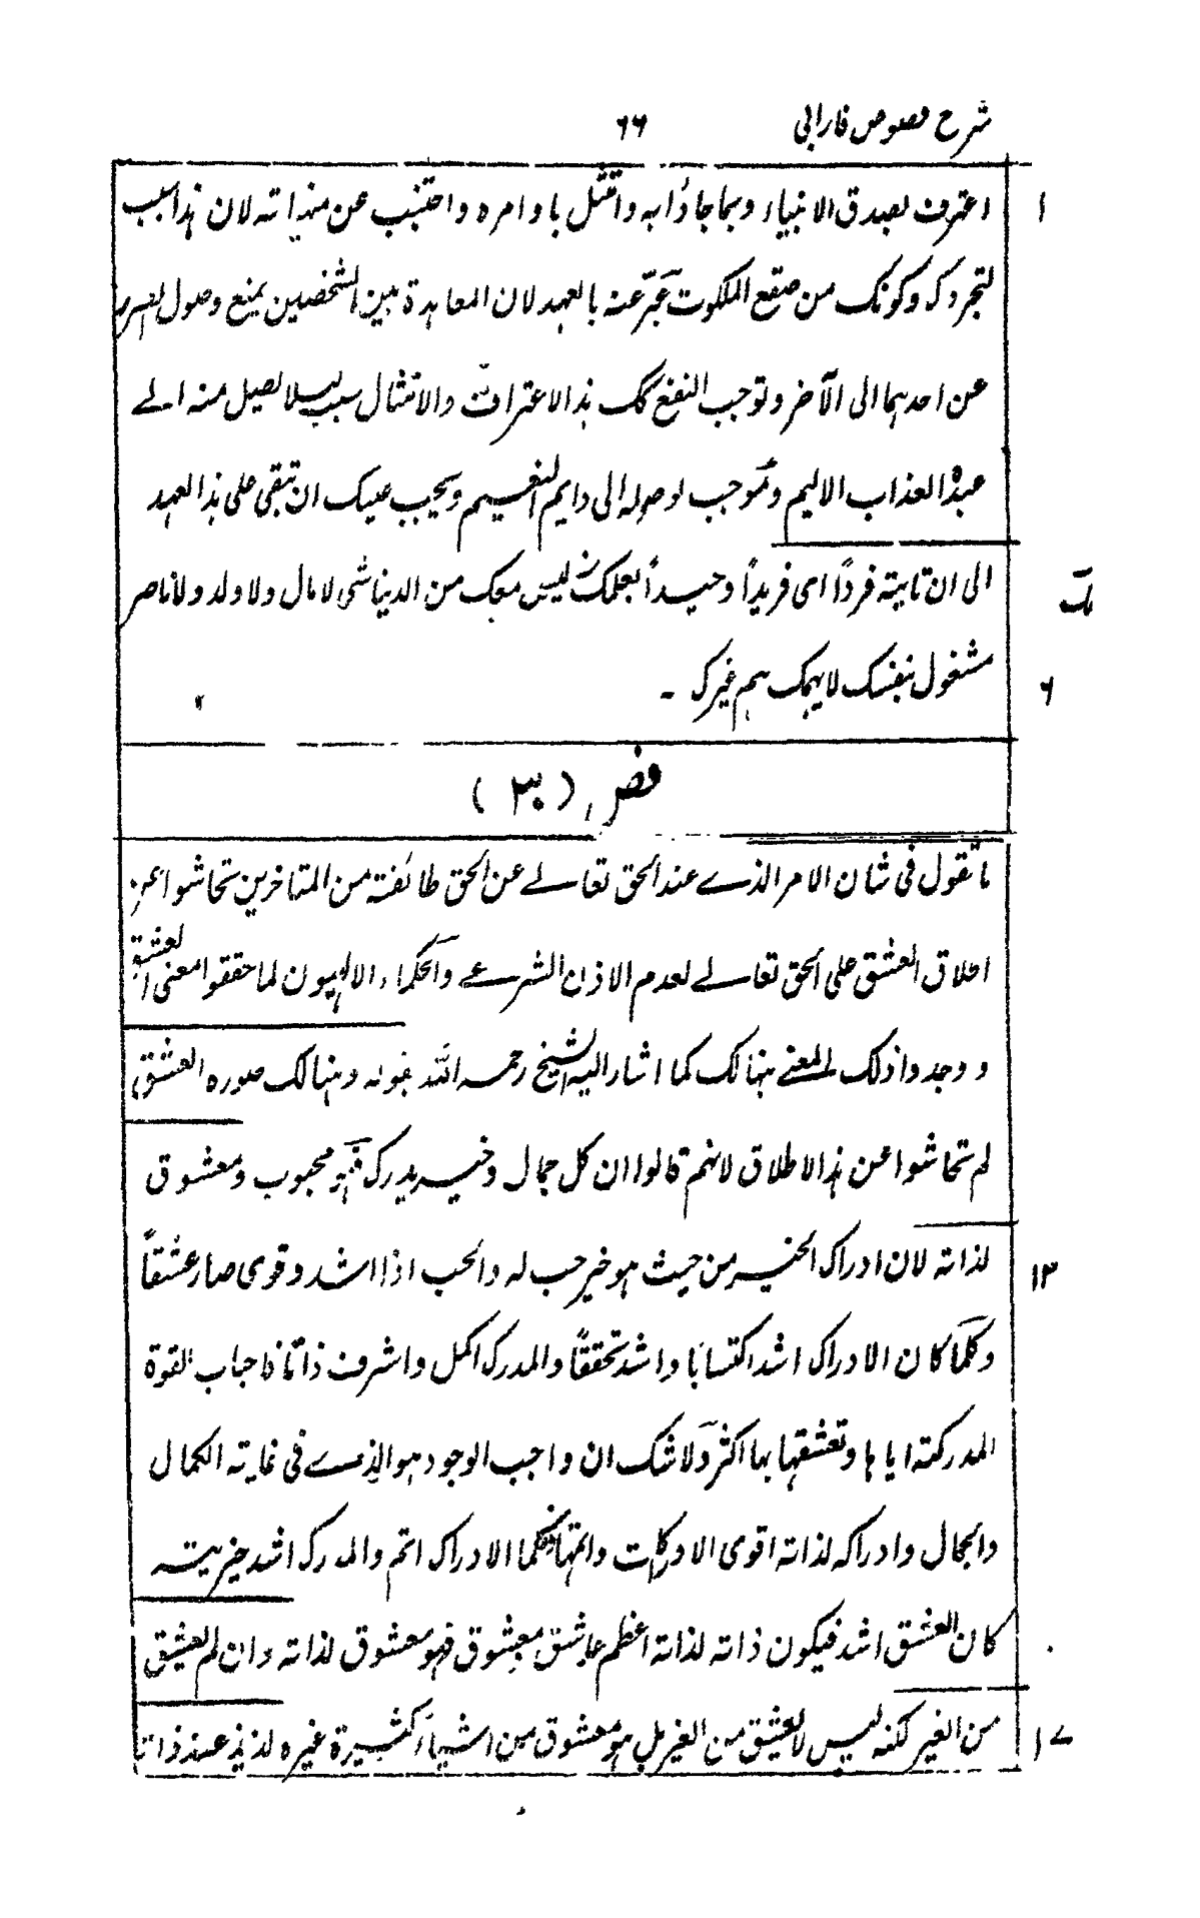 شرح فصوص فارابی ٦٦
اعترف بصدق الانبیاء وبما جاؤا به وامتثل باوامره واجتنب عن منهیاته لان هذا سبب ١
لتجردک وکونک من صقع الملکوت عبّر عنه بالعهد لان المعاهدة بین الشخصین یمنع وصول الضرر
عن احدهما الی الآخر وتوجب النفع کک هذا الاعتراف والامتثال سبب لئلا یصل منه الے
عبده العذاب الالیم وموجب لوصوله الی دایم النعیم ویجب علیک ان تبقی علی هذا العهد
الی ان تاتیه فردًا ای فریدًا وحیداً بعملک لیس معک من الدنیا شی لا مال ولا ولد ولا ناصر
مشغول بنفسک لا یهمک هم غیرک - ٦
فص (٣٠)
ما تقول فی شان الامر الذے عند الحق تعالے عن الحق طائفة من المتاخرین تحاشوا عن
اطلاق العشق علی الحق تعالے لعدم الاذن الشرعے والحکماء الالهیون لما حققوا معنی العشق
و وجدوا ذلک المعنے هنالک کما اشار الیه الشیخ رحمه الله بقوله وهنالک صوره العشق
لم تحاشوا عن هذا الاطلاق لانهم قالوا ان کل جمال وخیر یدرک فهو محبوب ومعشوق
لذاته لان ادراک الخیر من حیث هو خیر حب له والحب اذا اشد وقوی صار عشقاً ١٣
وکلما کان الادراک اشد اکتسابا واشد تحققًا والمدرک اکمل واشرف ذاتا فاحباب القوة
المدرکة ایاها وتعشقها بها اکثر ولا شک ان واجب الوجود هو الذے فی غایة الکمال
والجمال وادراکه لذاته اقوی الادراکات واتمها فکلما الادراک اتم والمدرک اشد خیریته
کان العشق اشد فیکون ذاته لذاته اعظم عاشق معشوق فهو معشوق لذاته وان لم العشق
من الغیر لکنه لیس لا لعشیق من الغیر بل هو معشوق من اشیاء کثیرة غیره لذیذ عند ذاتا ١٧